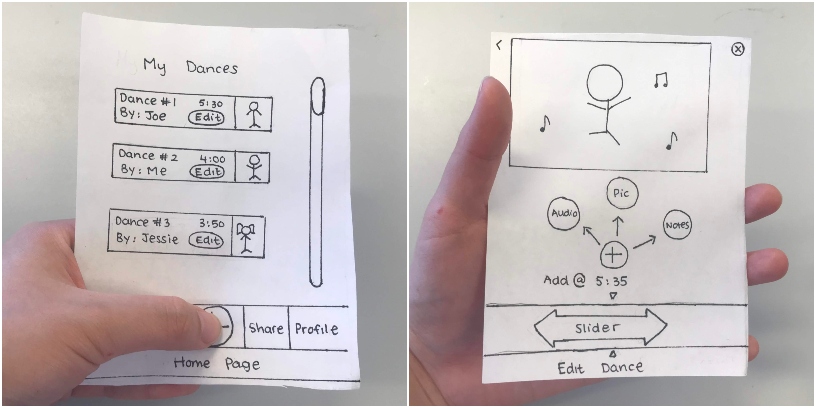 My Dances
Dance #1 5:30
By: Joe Edit
Dance #2 4:00
By: Me Edit
Dance #3 3:50
By: Jessie Edit
Share Profile
Home Page
<
Pic
Audio
Notes
+
Add @ 5:35
Slider
Edit Dance